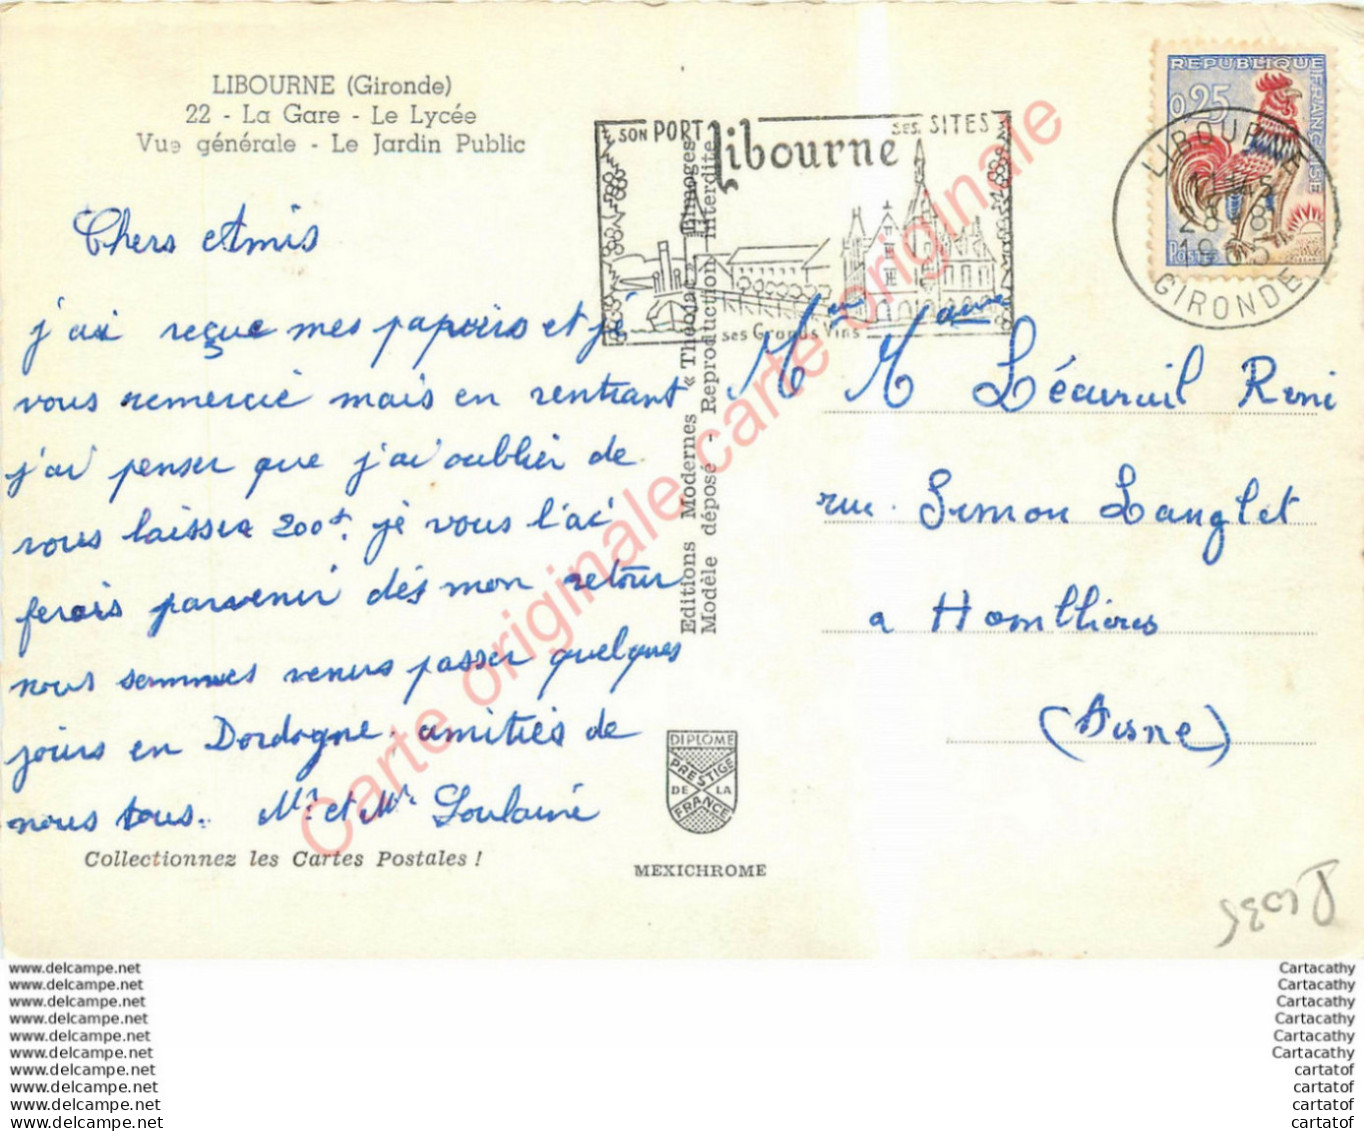 LIBOURNE (Gironde)
22 - La Gare - Le Lycée
Vue générale - Le Jardin Public
Chers Amis
j'ai reçue mes papiers et je
vous remercie mais en rentrant
j'ai penser que j'ai oublier de
vous laisser 200f. je vous l'ai
ferais parvenir dés mon retour
nous sommes venus passer quelques
jours en Dordogne. amitiés de
nous tous. Mr et Me Loulainé
Collectionnez les Cartes Postales !
Editions Modernes « Théojac » Limoges
Modèle déposé - Reproduction interdite
DIPLOME
PRESTIGE
DE LA
FRANCE
MEXICHROME
SON PORT
Libourne
SES SITES
SES Grands Vins
REPUBLIQUE FRANÇAISE
0,25
POSTES
LIBOURNE
28 8
GIRONDE
Mr Mame Lécureuil Reni
rue Simon Langlet
a Homblières
(Aisne)
Carte originale carte originale carte originale
www.delcampe.net
www.delcampe.net
www.delcampe.net
www.delcampe.net
www.delcampe.net
www.delcampe.net
www.delcampe.net
www.delcampe.net
www.delcampe.net
www.delcampe.net
Cartacathy
Cartacathy
Cartacathy
Cartacathy
Cartacathy
Cartacathy
cartatof
cartatof
cartatof
cartatof